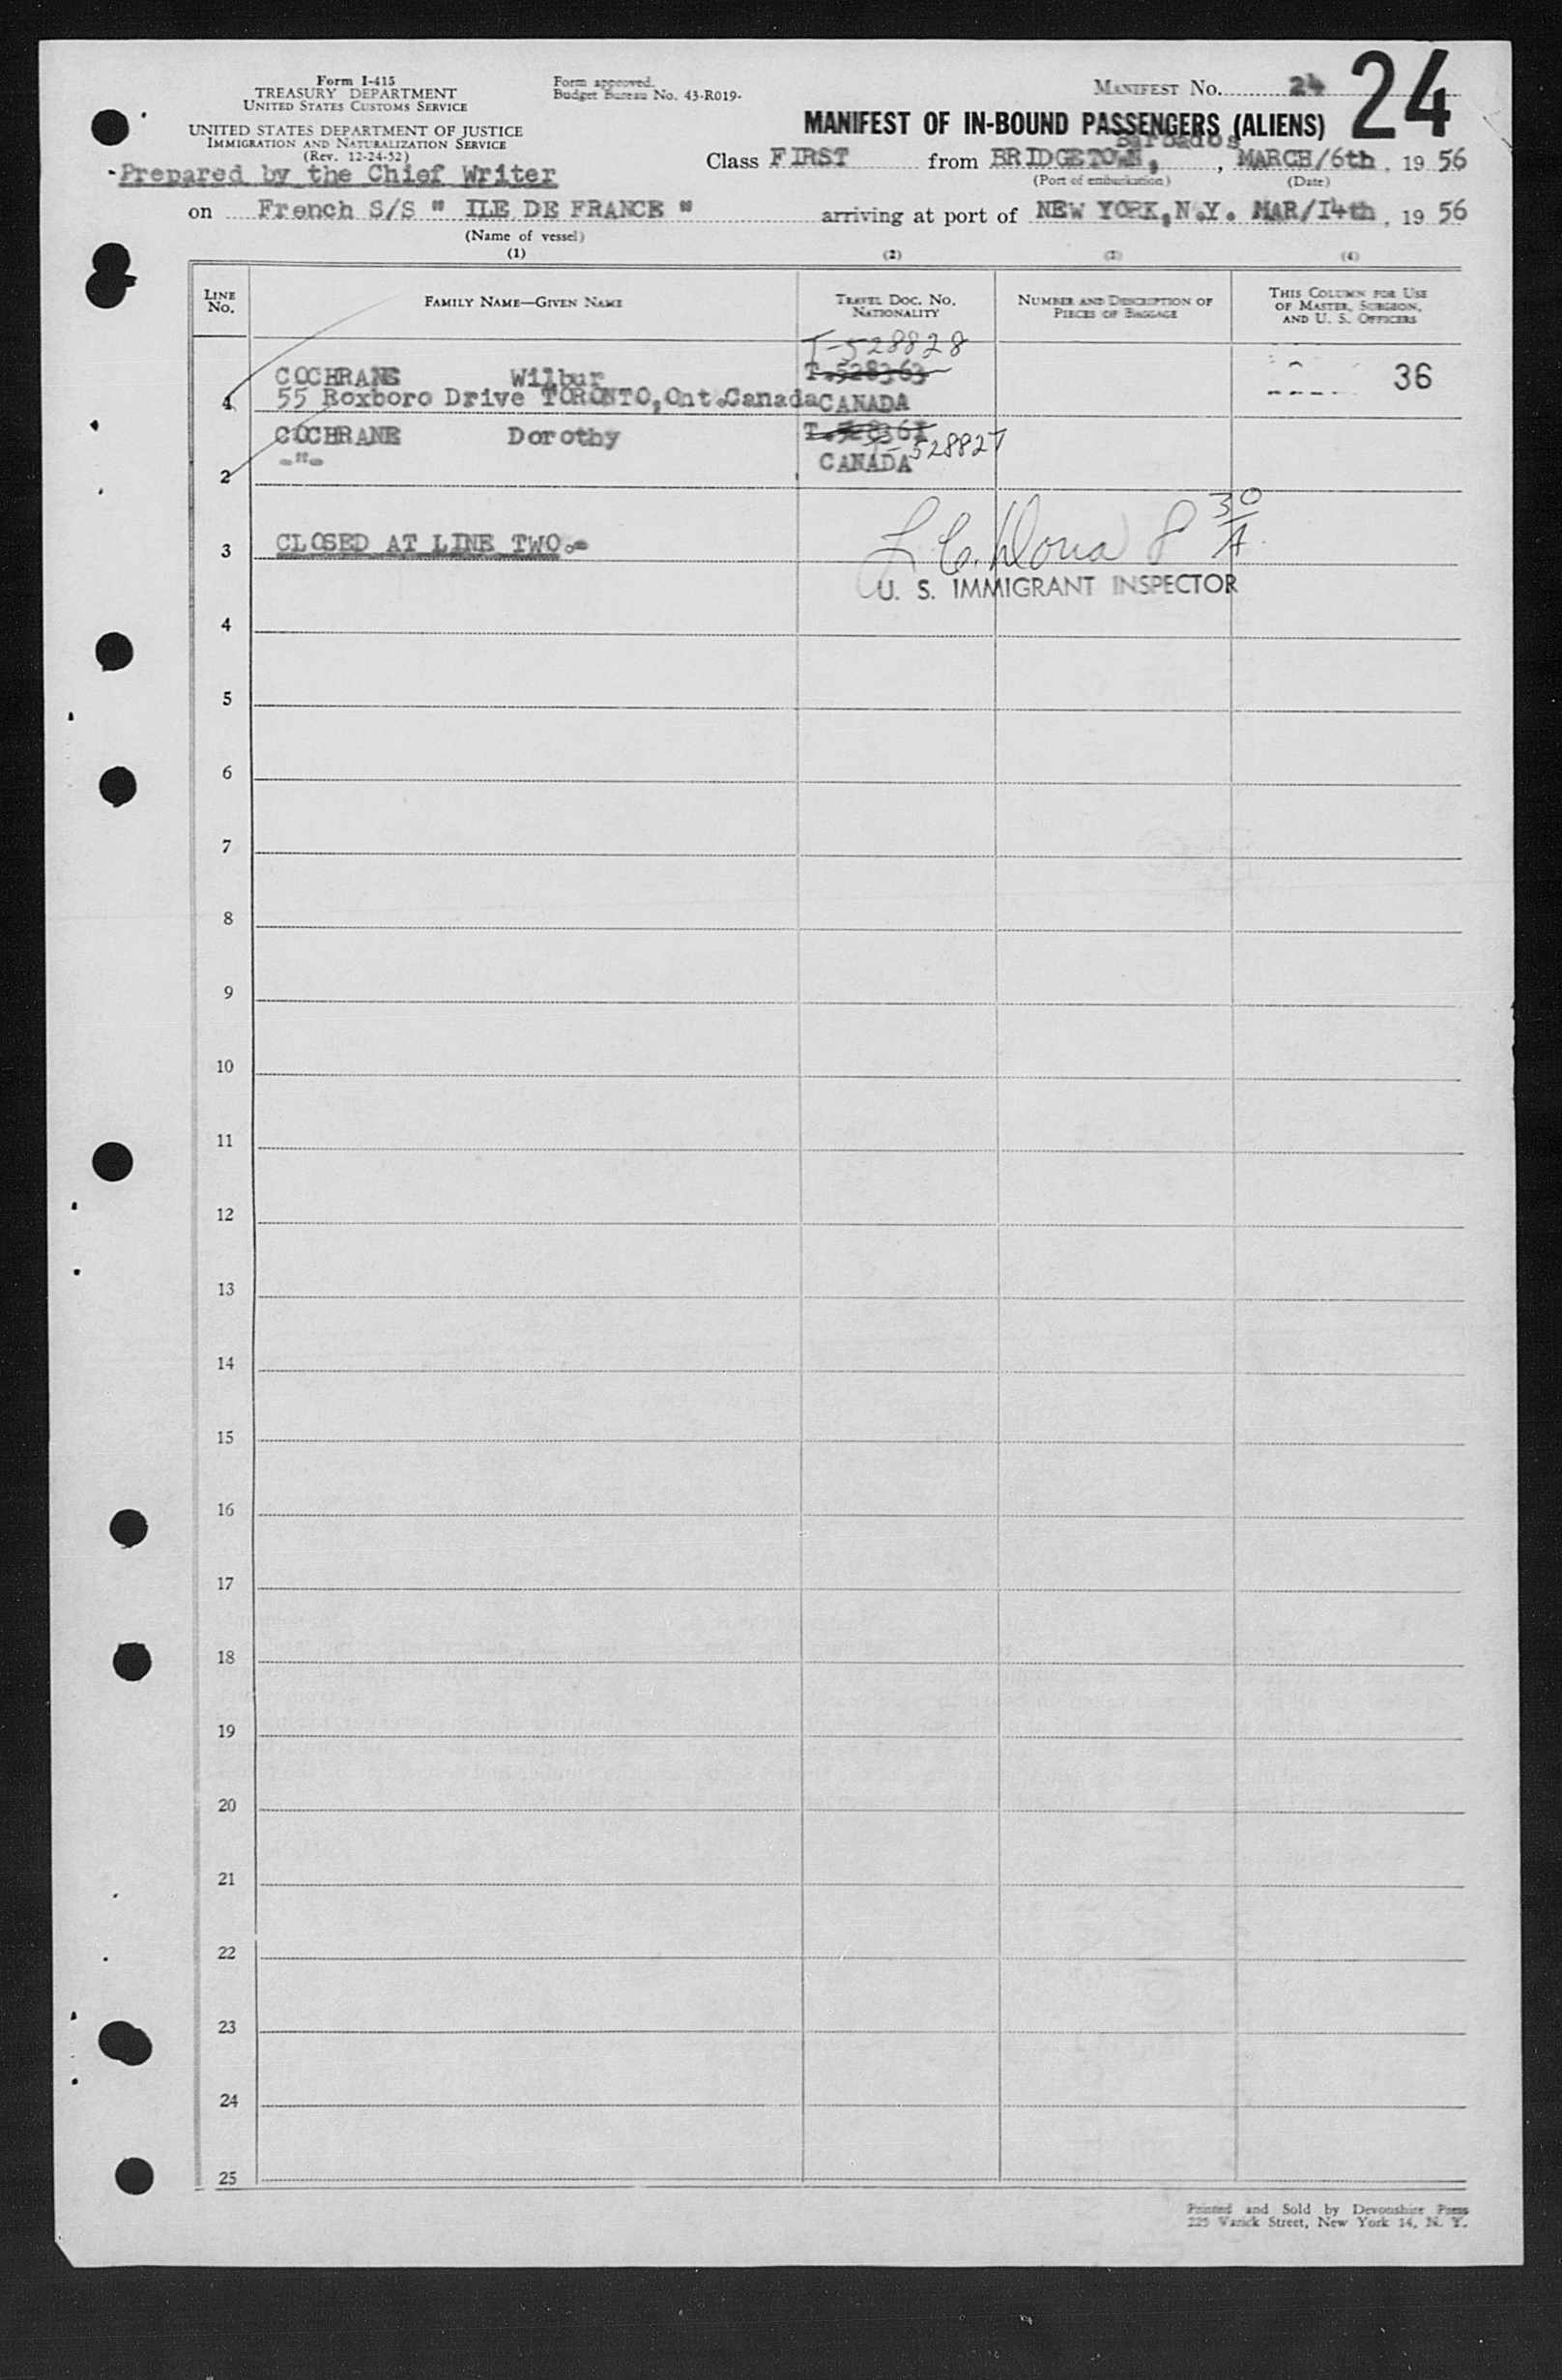 Form I-415
TREASURY DEPARTMENT
UNITED STATES CUSTOMS SERVICE
UNITED STATES DEPARTMENT OF JUSTICE
IMMIGRATION AND NATURALIZATION SERVICE
(Rev. 12-24-52)
Form approved.
Budget Bureau No. 43-R019-
MANIFEST No. 24
24
MANIFEST OF IN-BOUND PASSENGERS (ALIENS)
Barbados
Prepared by the Chief Writer
Class FIRST from BRIDGETOWN, , MARCH/6th , 19 56
(Port of embarkation) (Date)
on French S/S " ILE DE FRANCE " arriving at port of NEW YORK,N.Y. MAR/I4th , 19 56
(Name of vessel)
(1) (2) (3) (4)
LINE No. FAMILY NAME—GIVEN NAME TRAVEL DOC. No. NATIONALITY NUMBER AND DESCRIPTION OF PIECES OF BAGGAGE THIS COLUMN FOR USE OF MASTER, SURGEON, AND U. S. OFFICERS
T-528828
COCHRANE Wilbur T.528363 36
1 55 Roxboro Drive TORONTO,Ont.Canada CANADA
COCHRANE Dorothy T.52836I
-"- T-528827
2 CANADA
3 CLOSED AT LINE TWO.- 8 30/A
U. S. IMMIGRANT INSPECTOR
4
5
6
7
8
9
10
11
12
13
14
15
16
17
18
19
20
21
22
23
24
25
Printed and Sold by Devonshire Press
225 Varick Street, New York 14, N. Y.